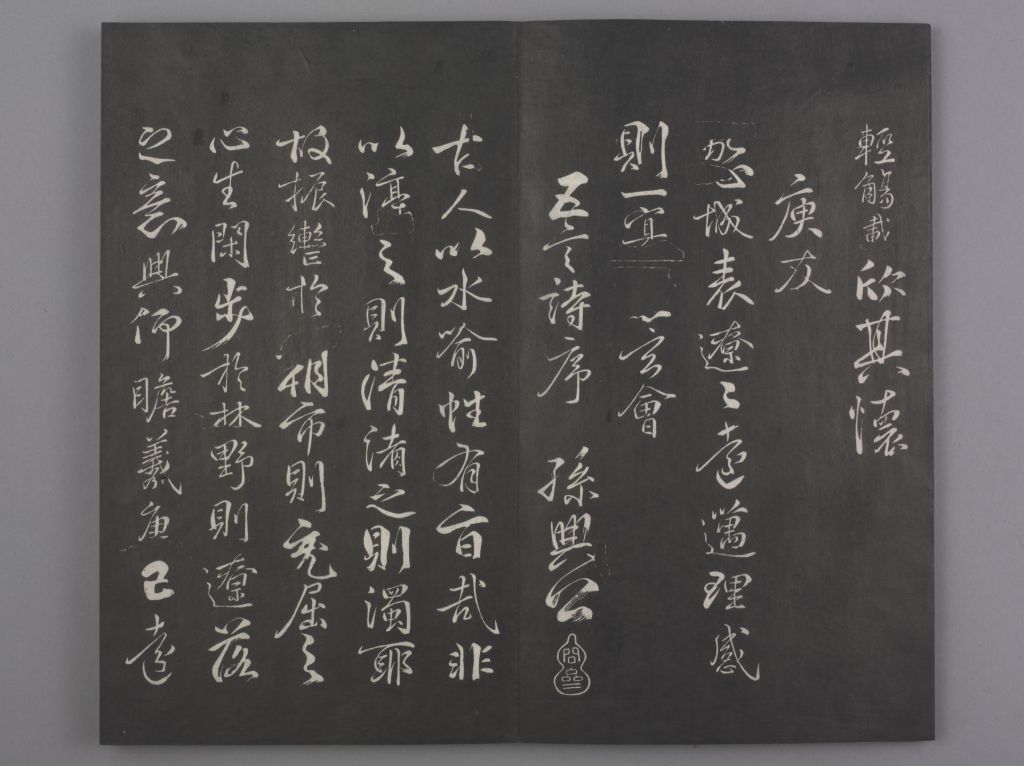 輕觴載欣其懷
庾友
表遼〻遠邁理感
則一玄會
五言詩序 孫興公
古人以水喻性有旨哉非
以渟之則清渚之則濁耶
故振轡於朝市則充屈之
心生閑步於林野則遼落
之意興仰瞻羲唐已遠